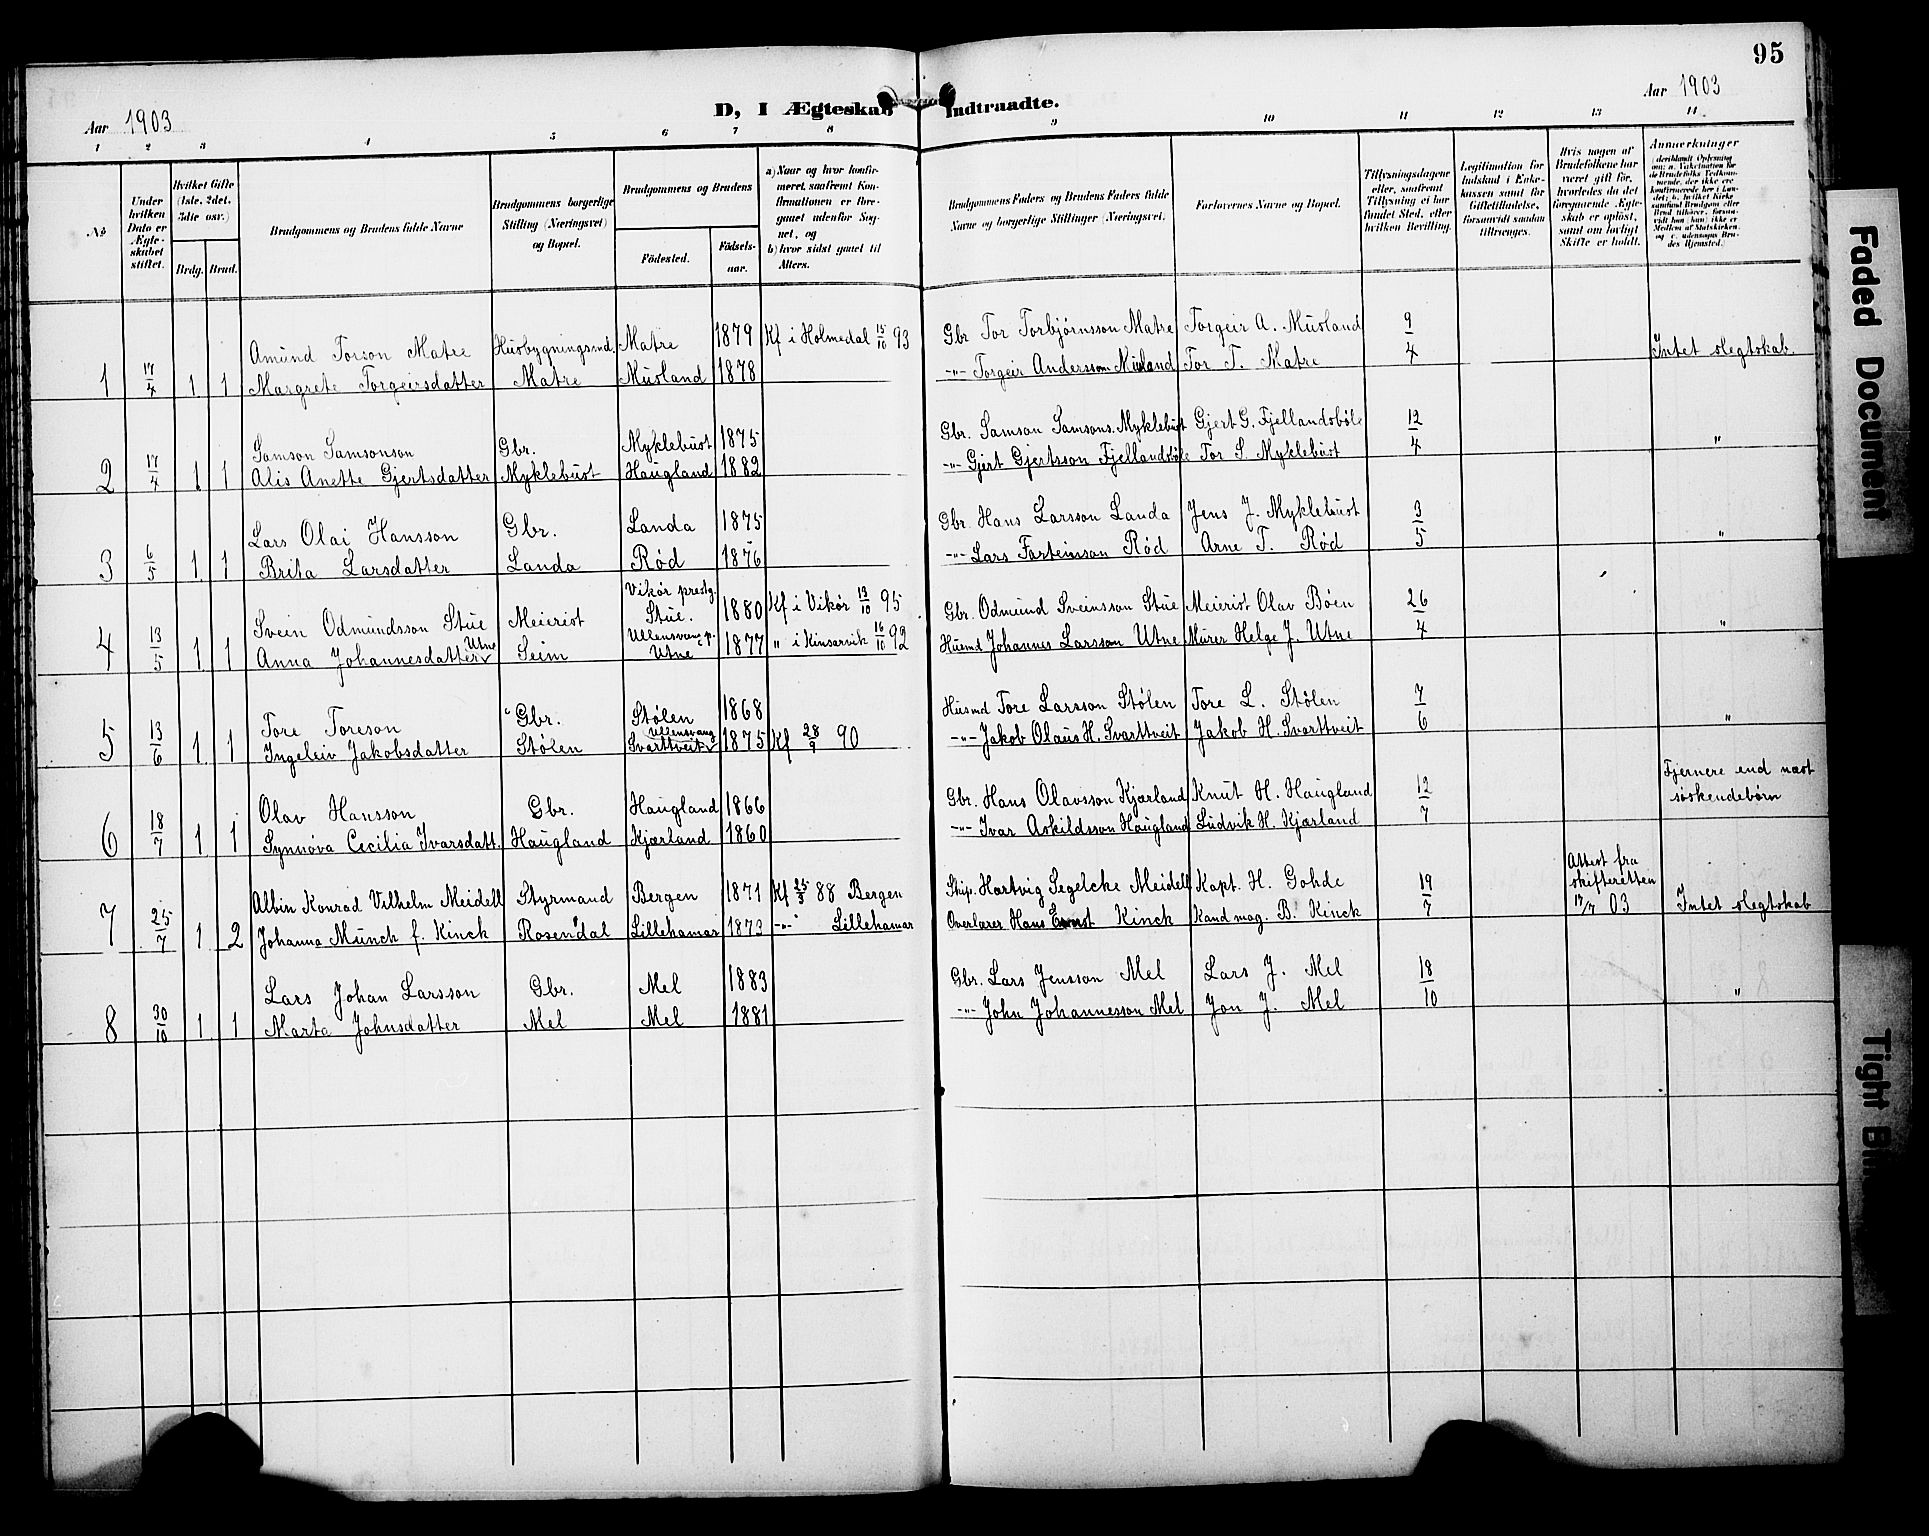 95
Aar 1903
D, I Ægteskab Indtraadte.
Aar 1903
1 2 3 4 5 6 7 8 9 10 11 12 13 14
№
Under hvilken Dato er Ægteskabet stiftet.
Hvilket Gifte (1ste, 2det, 3die osv.)
Brdg. Brud.
Brudgommens og Brudens fulde Navne
Brudgommens borgerlige Stilling (Næringsvei) og Bopæl.
Brudgommens og Brudens
Fødested.
Fødselsaar.
a) Naar og hvor konfirmeret, saafremt Konfirmationen er foregaaet udenfor Sognet, og
b) hvor sidst gaaet til Alters.
Brudgommens Faders og Brudens Faders fulde Navne og borgerlige Stillinger (Næringsvei.
Forlovernes Navne og Bopæl.
Tillysningsdagene eller, saafremt Tillysning ei har fundet Sted, efter hvilken Bevilling.
Legitimation for Indskud i Enkekassen samt for Giftetilladelse, forsaavidt saadan tiltrænges.
Hvis nogen af Brudefolkene har været gift før, hvorledes da det foregaaende Ægteskab er opløst, samt om lovligt Skifte er holdt.
Anmærkninger
Amund Torson Matre Husbygningsmd. Matre 1879 Kf i Holmedal 15/10 93 Gbr Tor Torbjørnsson Matre Torgeir A. Musland 9
1 17/4 1. 1 Margrete Torgeirsdatter Matre Musland 1878 -"- Torgeir Andersson Musland Tor T. Matre 4 Intet slegtskab.
Samson Samsonson Gbr. Myklebust 1875 Gbr. Samson Samsons. Myklebust Gjert G. Fjellandsbøle 12
2 17/4 1. 1 Alis Anette Gjertsdatter Myklebust Haugland 1882 -"- Gjert Gjertsson Fjellandsbøle Tor S. Myklebust 4 "
Lars Olai Hansson Gbr. Landa 1875 Gbr. Hans Larsson Landa Jens J. Myklebust 3
3 6/5 1. 1 Brita Larsdatter Landa Rød 1876 -"- Lars Torteinsson Rød Arne T. Rød 5 "
Vikør prestg.
Svein Odmundsson Stue Meierist Stue. 1880 Kf i Vikør 13/10 95 Gbr. Odmund Sveinsson Stue Meierist Olav Bøen 26
Utne Ullensvang p.
4 13/5 1. 1 Anna Johannesdatter Seim Utne 1877 " i Kinsarvik 16/10 92 Husmd Johannes Larsson Utne Murer Helge J. Utne 4 "
Tore Toreson Gbr. Stølen 1868 Husmd Tore Larsson Stølen Tore L. Stølen 7
Ullensvang
5 13/6 1. 1 Ingeleiv Jakobsdatter Stølen Svarttveit 1875 Kf 28/9 90 -"- Jakob Olaus H. Svarttveit Jakob H. Svarttveit 6 "
Olav Hansson Gbr. Haugland 1866 Gbr. Hans Olavsson Kjærland Knut H. Haugland 12 Fjernere end næst
6 18/7 1. 1 Synnøva Cecilia Ivarsdatt. Haugland Kjærland 1860 -"- Ivar Askildsson Haugland Ludvik H. Kjærland 7 søskendebørn
Albin Konrad Vilhelm Meidell Styrmand Bergen 1871 Kf 25/3 88 Bergen Skip. Hartvig Segelcke Meidell Kapt. H. Gohde 19 Attest fra skifteretten
7 25/7 1. 2 Johanna Munch f. Kinck Rosendal Lillehamar 1873 -"- Lillehamar Overlærer Hans Ernst Kinck Kand mag. B. Kinck 7 17/7 03 Intet slegtskab
Lars Johan Larsson Gbr. Mel 1883 Gbr. Lars Jensson Mel Lars J. Mel 18
8 30/10 1. 1 Marta Johnsdatter Mel Mel 1881 -"- John Johannesson Mel Jon J. Mel 10 "
Faded Document
Tight